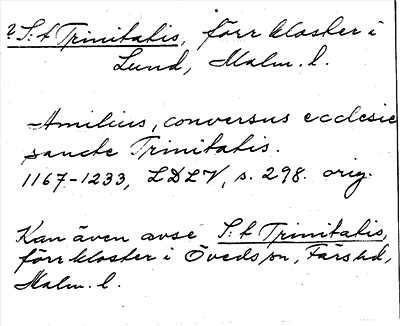 ? S:t Trinitatis, förr kloster i
Lund, Malm. l.
Amilius, conversus ecclesie
sancte Trinitatis.
1167-1233, LDLV, s. 298. orig.
Kan även avse S:t Trinitatis,
förr kloster i Öveds sn, Färs hd,
Malm. l.